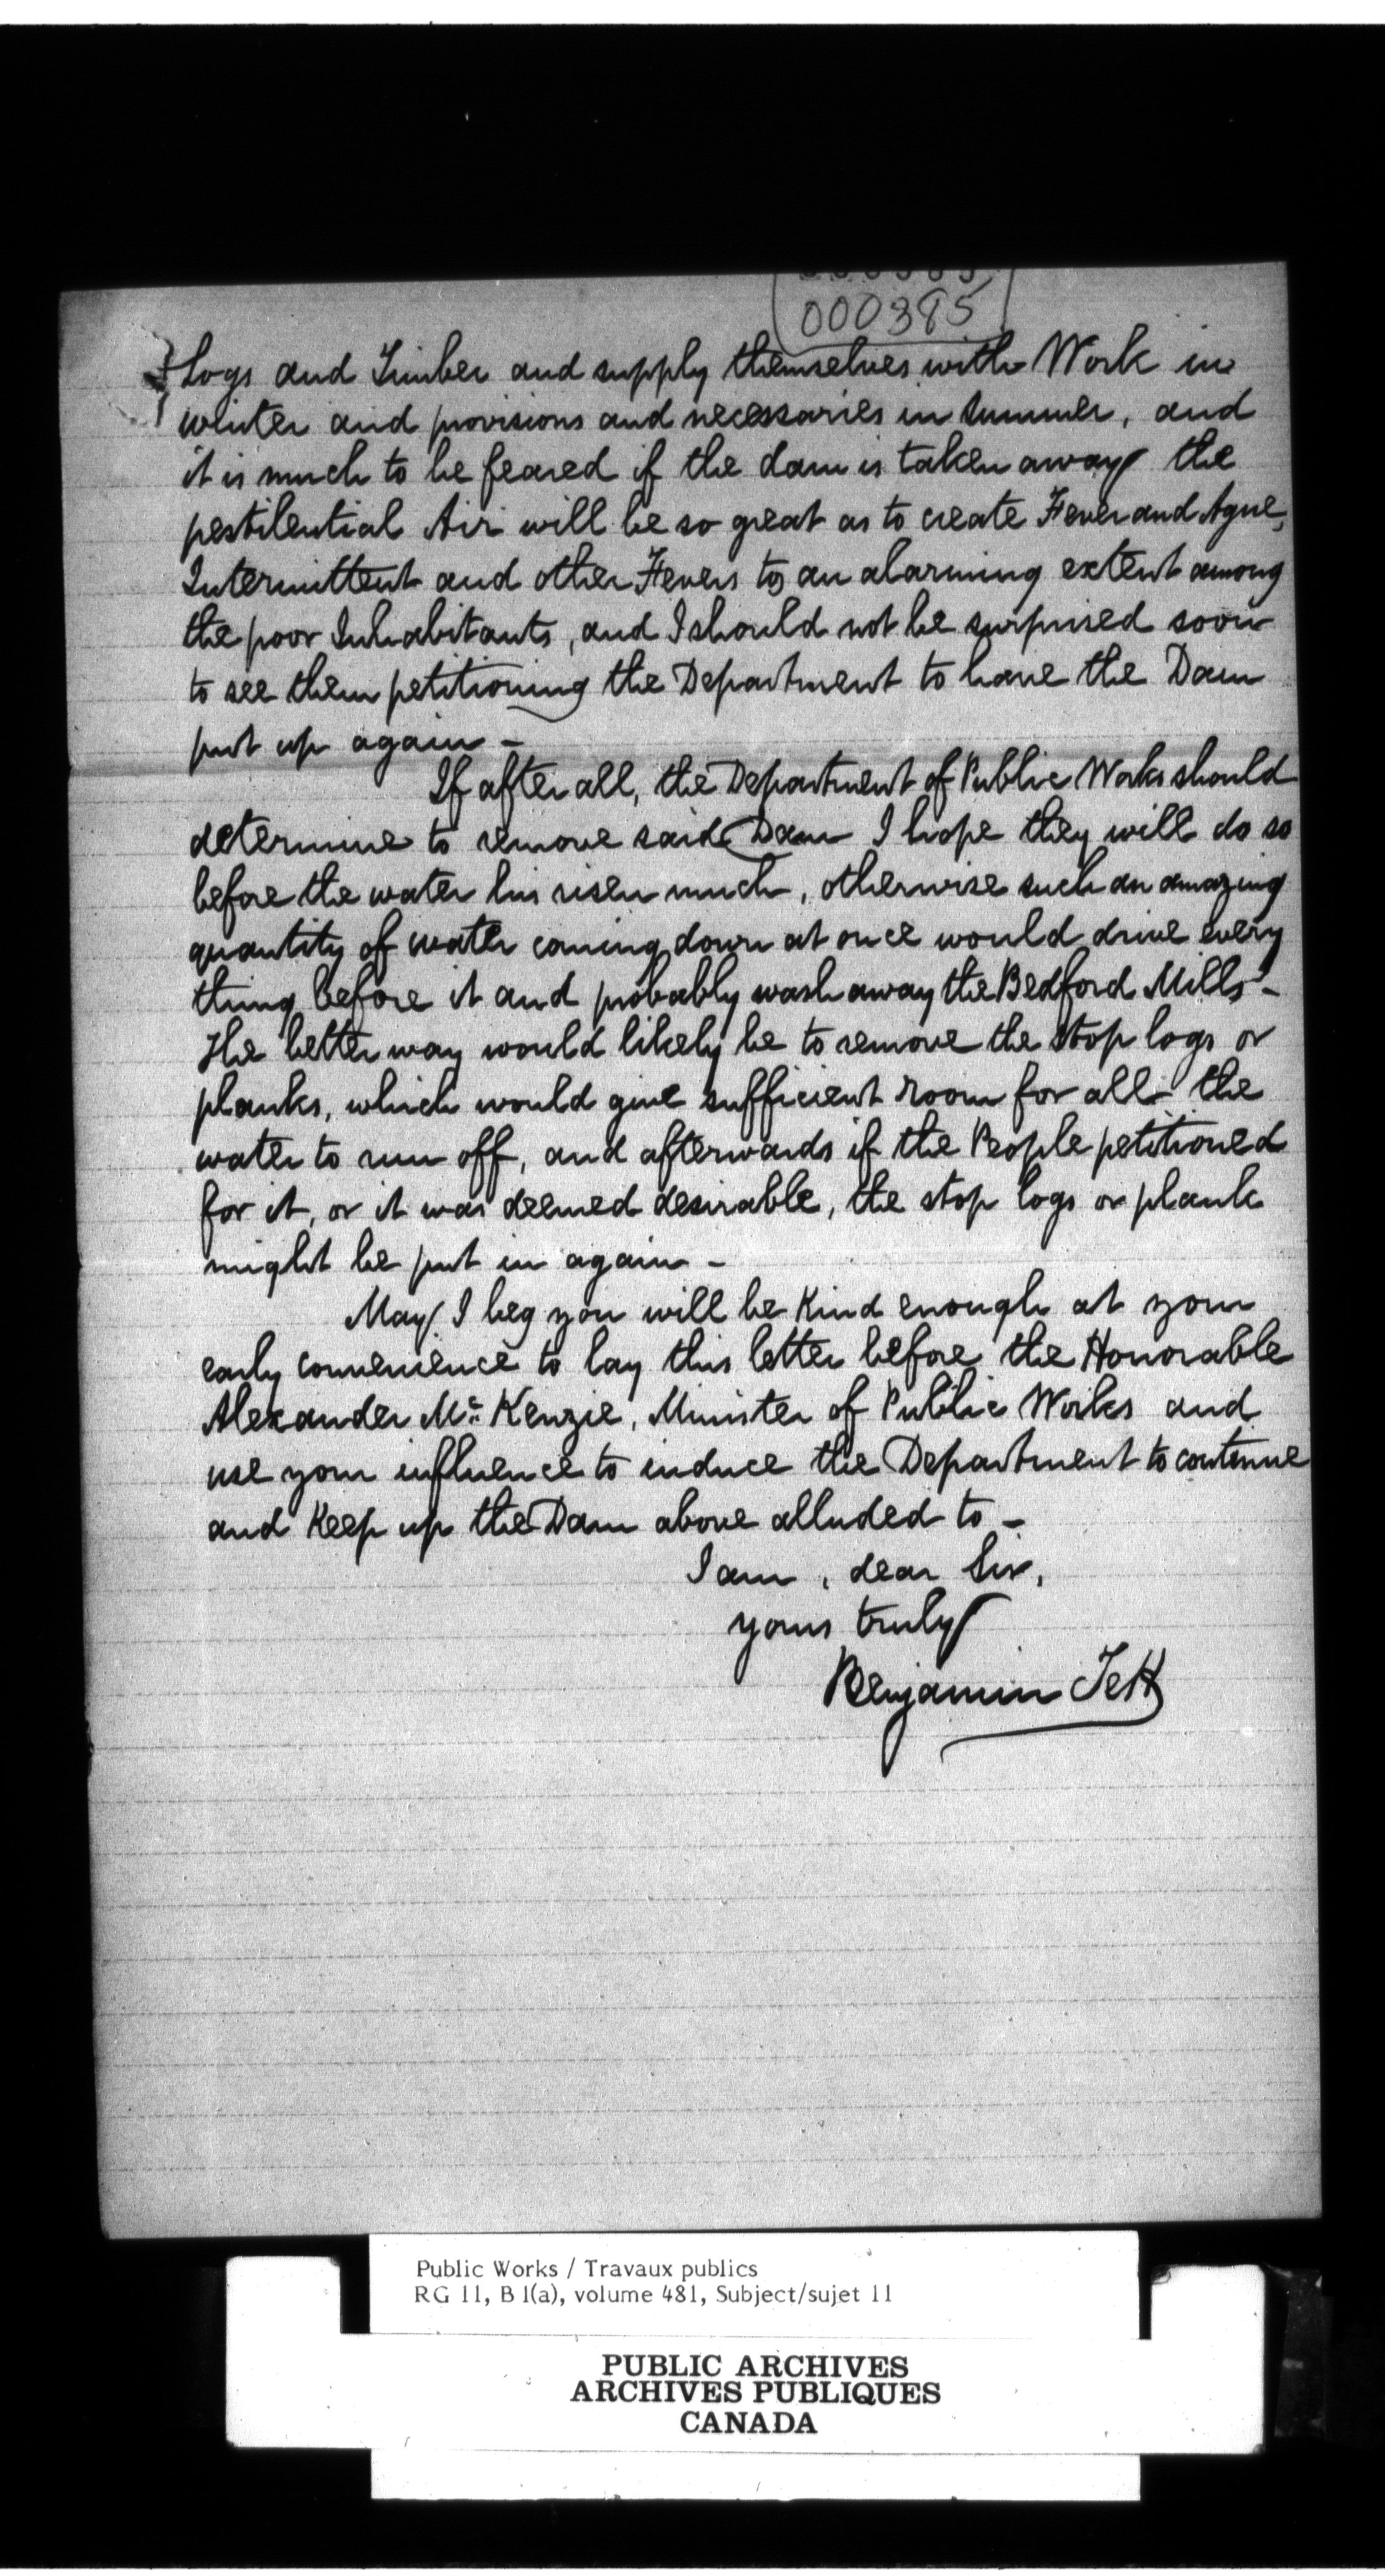 000385
Logs and Timber and supply themselves with Work in
winter and provisions and necessaries in Summer, and
it is much to be feared if the dam is taken away the
pestilential Air will be so great as to create Fever and Ague,
Intermittent and other Fevers to an alarming extent among
the poor Inhabitants, and I should not be surprised soon
to see them petitioning the Department to have the Dam
put up again –
If after all, the Department of Public Works should
determine to remove said Dam I hope they will do so
before the water has risen much, otherwise such an amazing
quantity of water coming down at once would drive every
thing before it and probably wash away the Bedford Mills –
The better way would likely be to remove the stop logs or
planks, which would give sufficient room for all the
water to run off, and afterwards if the People petitioned
for it, or it was deemed desirable, the stop logs or plank
might be put in again –
May I beg you will be kind enough at your
early convenience to lay this letter before the Honorable
Alexander Mc Kenzie, Minister of Public Works and
use your influence to induce the Department to continue
and keep up the Dam above alluded to –
I am, dear Sir,
yours truly
Benjamin Tett
Public Works / Travaux publics
RG 11, B 1(a), volume 481, Subject/sujet 11
PUBLIC ARCHIVES
ARCHIVES PUBLIQUES
CANADA